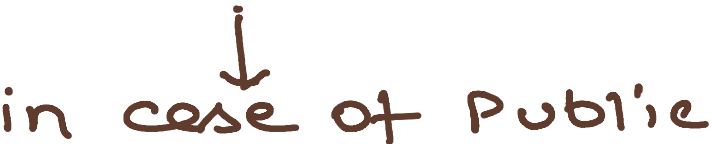 in case of Public